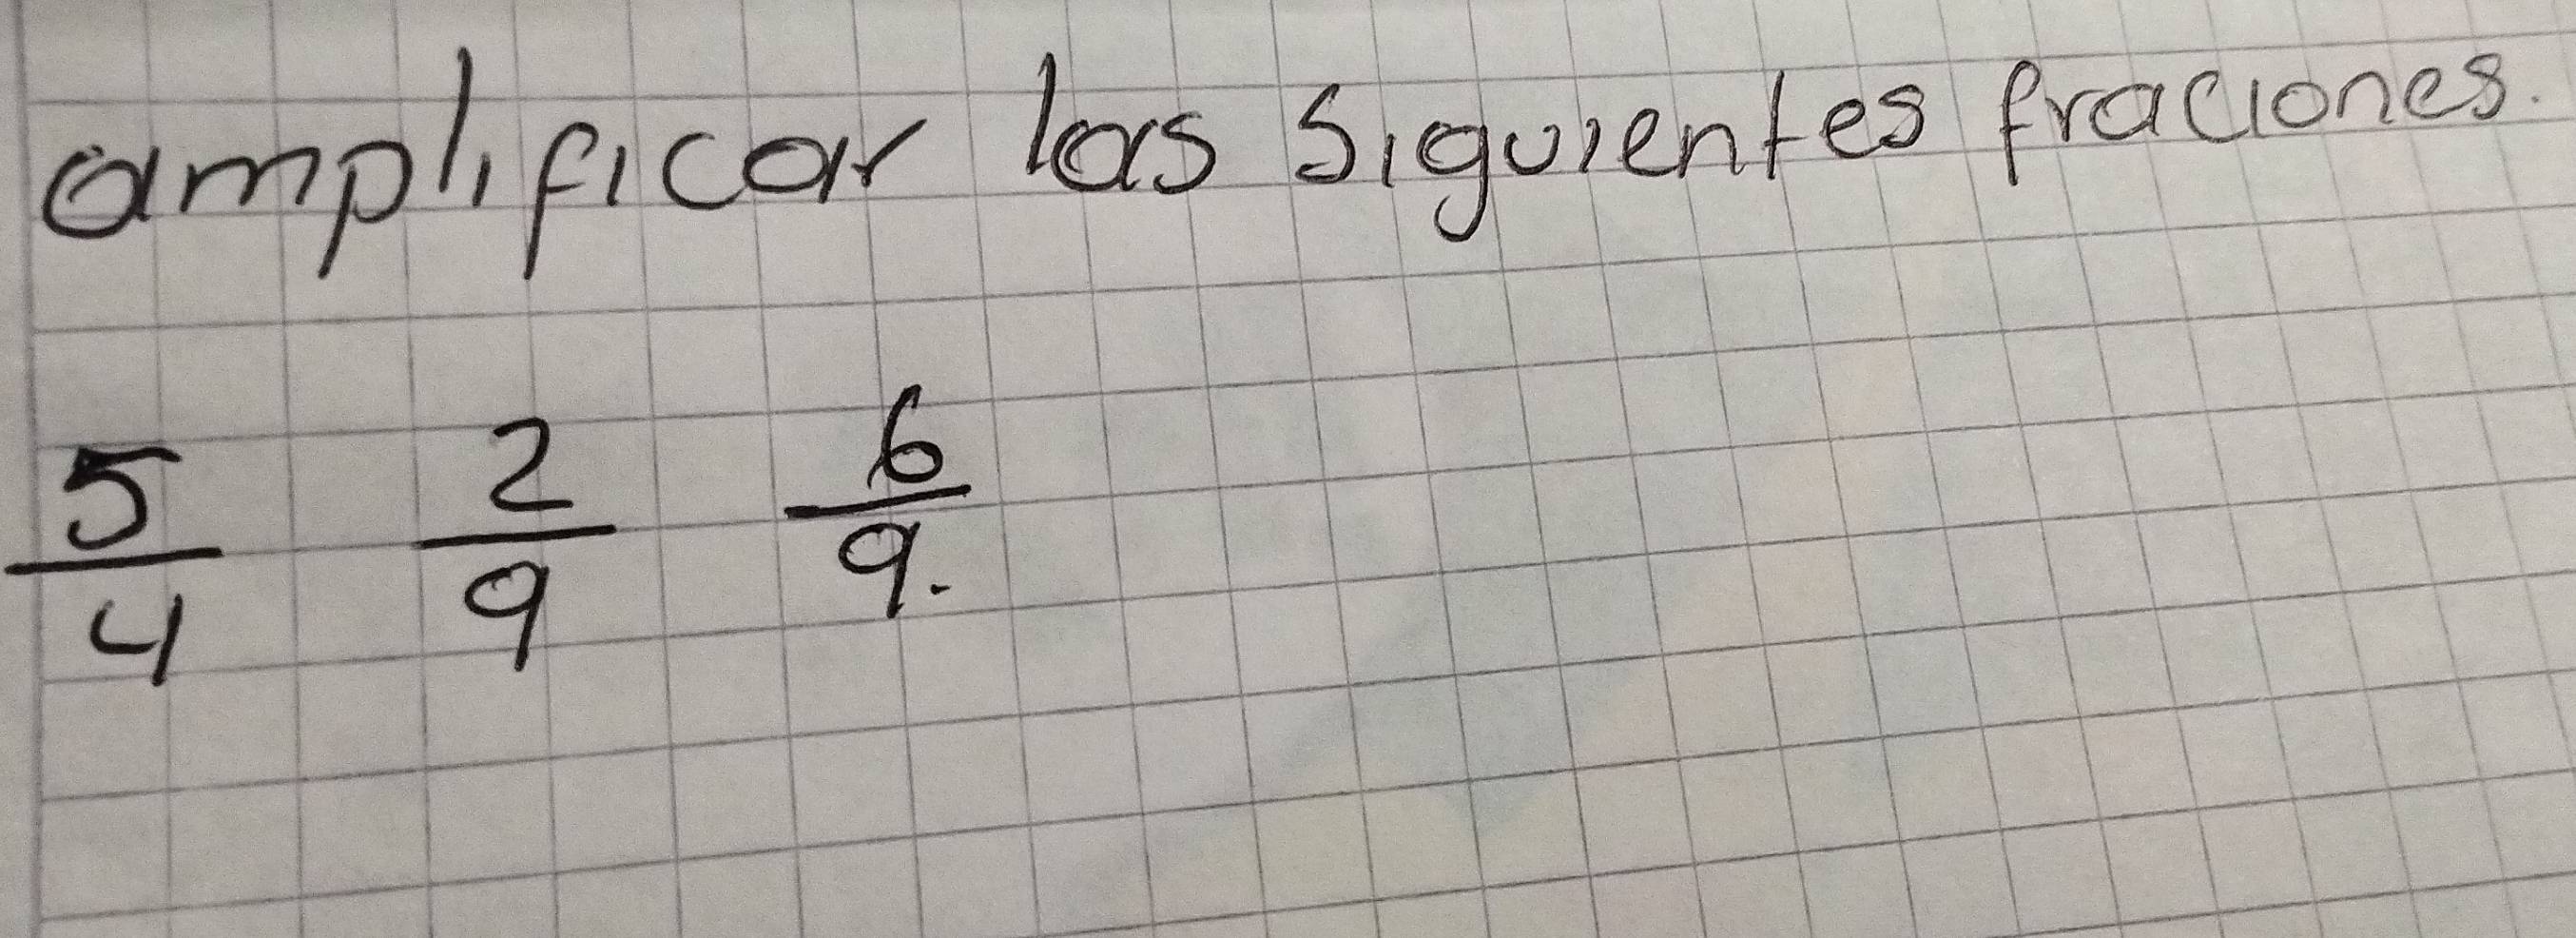 amplificar las siguientes fraciones.
5/4 2/9 6/9.